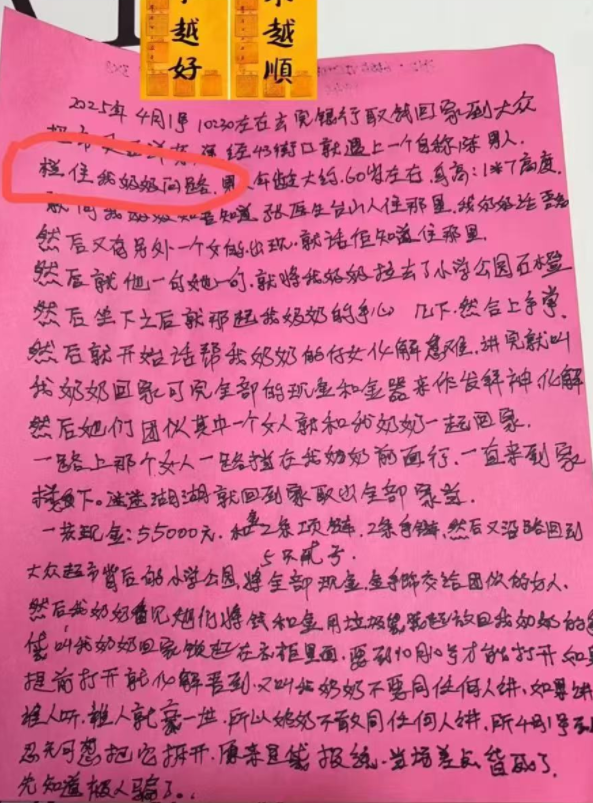 越好
越順
2025年4月1号 10:30左右去完银行取钱回家到大众
街口就遇上一个自称 男人.
拦住我奶奶问路. 男 年龄大约60岁左右 身高:1米7高度.
就问我奶奶知否知道 张医生台山人住那里. 我奶奶话否知
然后又有另外一个女的出现. 就话佢知道住那里.
然后就他一句她一句. 就将我奶奶拉去了小学公园石凳
然后坐下之后就 我奶奶的手心 几下. 然合上手掌.
然后就开始话帮我奶奶的仔女化解危难. 讲完就叫
我奶奶回家 全部的现金和金器来作 神化解
然后她们团伙其中一个女人就和我奶奶一起回家.
一路上那个女人一路 在我奶奶前面行. 一直来到家
楼下. 迷迷湖湖就回到家取出全部家
一共现金: 55000元. 和 2条项链. 2条手链. 然后又沿路回到
5只戒子
大众超市背后的小学公园. 将全部现金. 金 交给团伙的女人
然后我奶奶看见她们将钱和金用垃圾袋 放回我奶奶的
袋 叫我奶奶回家锁 在衣柜里面. 要到10月10号才能打开 如果
提前打开就化解否到. 又叫我奶奶不要同任何人讲. 如果讲
谁人听. 谁人就 所以奶奶不敢同任何人讲. 所4月1号
忍 可 把它拆开. 原来是 报纸. 当场差点 死了.
先知道被人骗了..